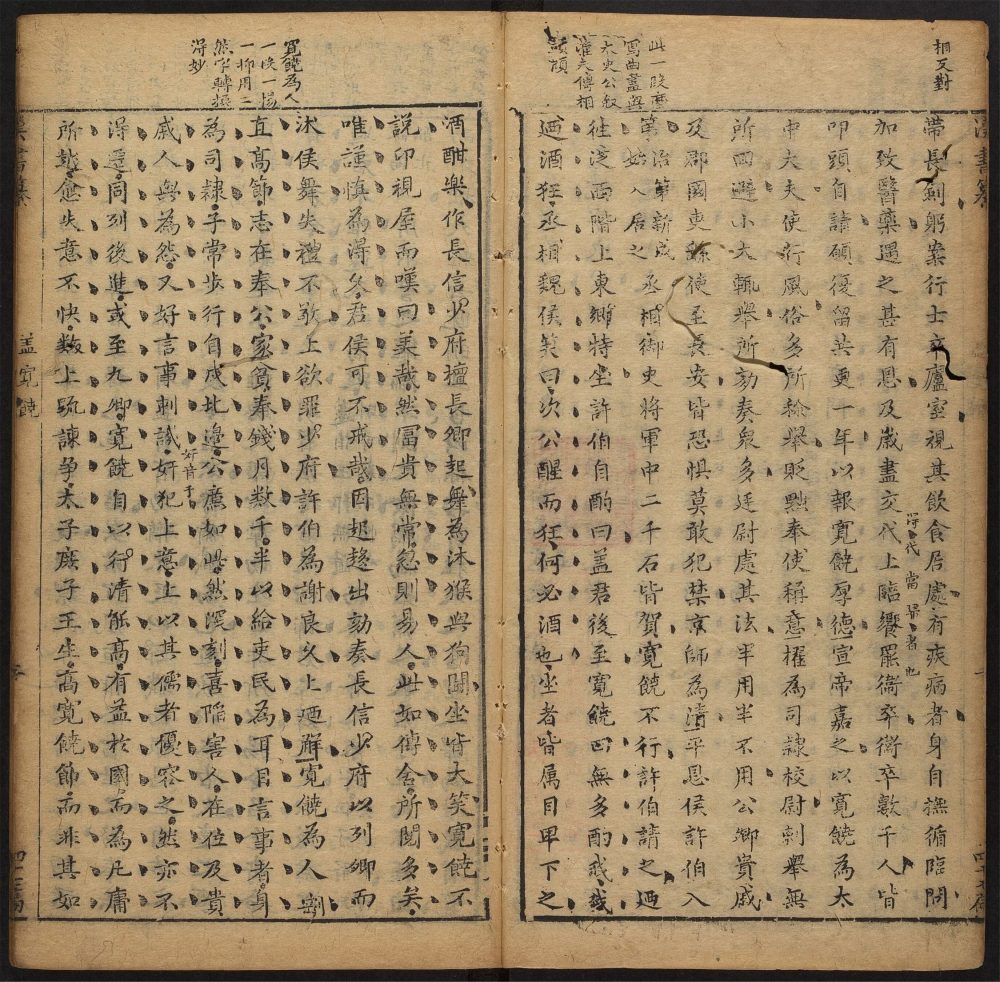 相反對
帶長劍躬案行士卒廬室視其飲食居處有疾病者身自撫循臨問
加致醫藥遇之甚有恩及歲盡交代上臨饗罷衞卒衞卒數千人皆
得代當歸者也
叩頭自請願復留共更一年以報寬饒厚德宣帝嘉之以寬饒為太
中大夫使行風俗多所稱舉貶黜奉使稱意擢為司隸校尉刺舉無
所回避小大輒舉所劾奏衆多廷尉處其法半用半不用公卿貴戚
及郡國吏繇使至長安皆恐懼莫敢犯禁京師為清平恩侯許伯入
第治第新成始入居之丞相御史將軍中二千石皆賀寬饒不行許伯請之迺
往從西階上東鄉特坐許伯自酌曰盖君後至寬饒曰無多酌我我
迺酒狂丞相魏侯笑曰次公醒而狂何必酒也坐者皆属目卑下之
此一段
寫曲盡與
太史公叙
灌夫傳相
頡頏
酒酣樂作長信少府檀長卿起舞為沐猴與狗鬭坐皆大笑寬饒不
說卬視屋而嘆曰美哉然冨貴無常忽則易人此如傳舍所閱多矣
唯謹慎為得久君侯可不戒哉因起趍出劾奏長信少府以列卿而
沐侯舞失禮不敬上欲罪少府許伯為謝良久上迺解寬饒為人剛
直髙節志在奉公家貧奉錢月数千半以給吏民為耳目言事者身
為司隸子常步行自戍北邊公廉如此然深刻喜陥害人在位及貴
戚人與為怨又好言事刺譏奸音干奸犯上意上以其儒者優容之然亦不
得遷同列後進或至九卿寬饒自以行清能髙有益於國而為凡庸
所越愈失意不快数上疏諫爭太子庶子王生髙寬饒節而非其如
寛饒為人
一段一揚
一抑用三
然字轉換
得妙
盖寬饒